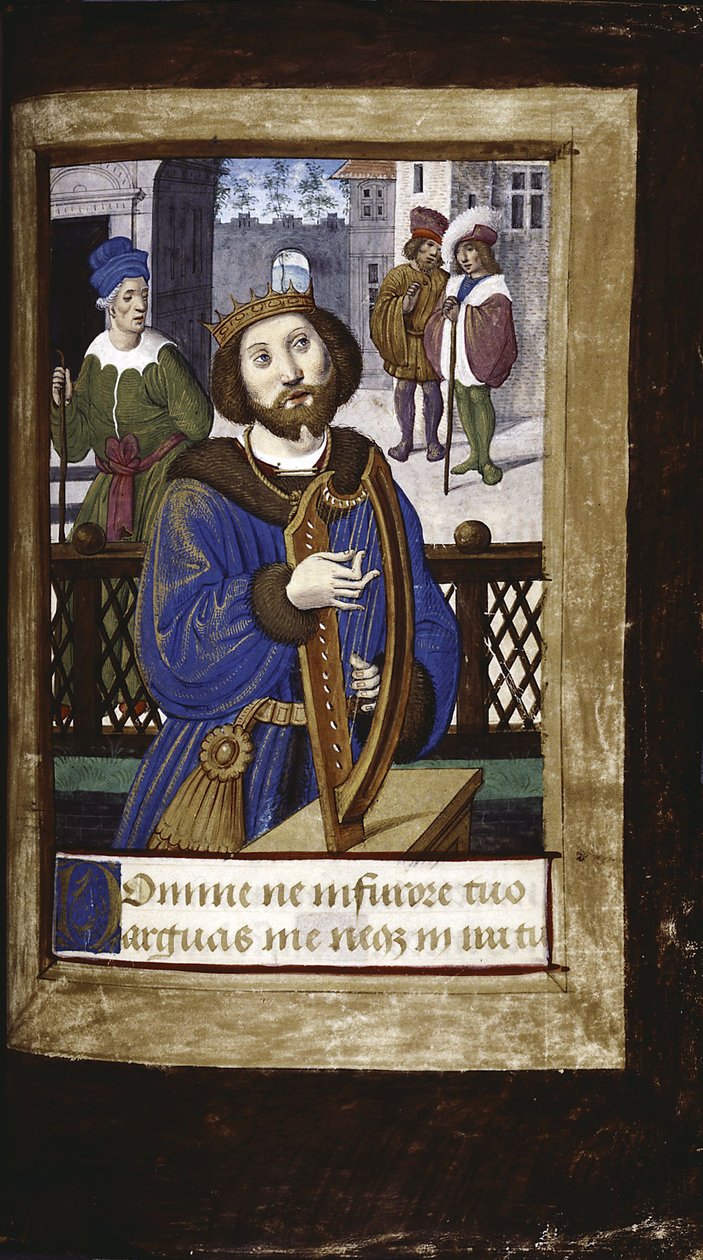 Domine ne in furore tuo
arguas me neqz in ira tu